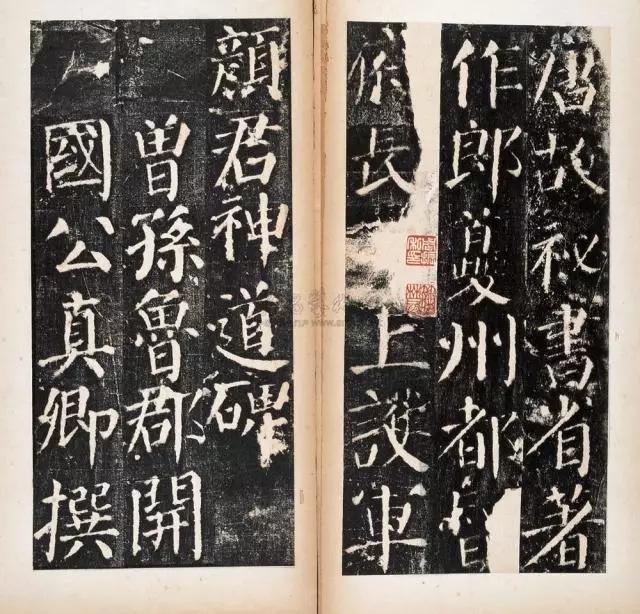 唐故祕書省著
作郎夔州都督
長上護軍
顏君神道碑
曾孫魯郡開
國公真卿撰